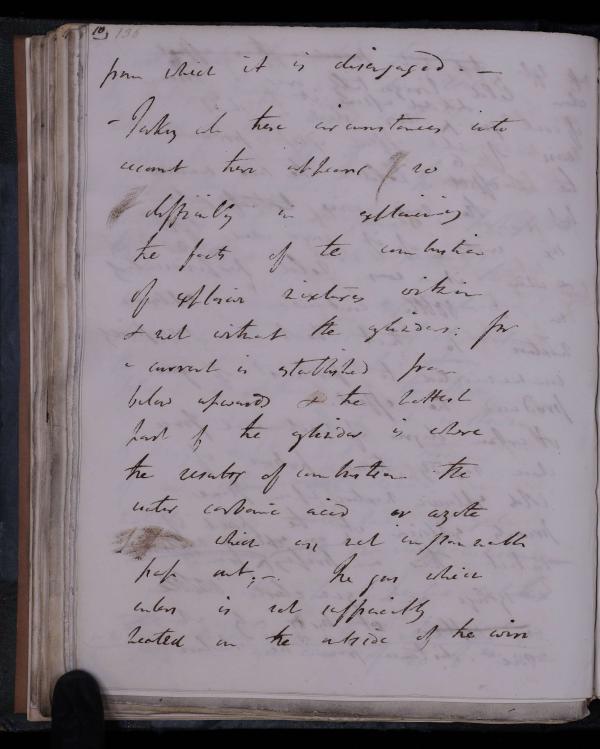 10 136
from which it is disengaged. —
- Taking all these circumstances into
account there appears no
difficulty in explaining
the facts of the combustion
of explosive mixtures within
& not without the cylinders: for
a current is established from
below upwards & the hottest
part of the cylinder is where
the results of combustion the
water carbonic acid or azote
which are not inflammable
pass out; -. The gas which
enters is not sufficiently
heated on the outside of the wire